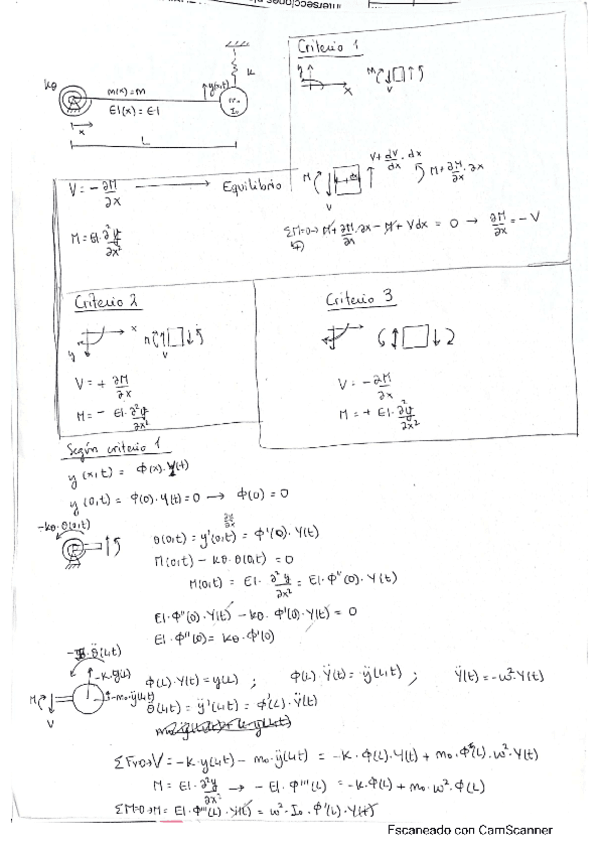 Criterio 1
kθ
m(x)=m
EI(x)=EI
y(x,t)
K
I₀
x
L
y
x
M
V
V = -∂M/∂x → Equilibrio
M
V
V+dV/dx·dx
M+∂M/∂x·∂x
M=EI·∂²y/∂x²
ΣM=0→M+∂M/∂x·∂x-M+Vdx = 0 → ∂M/∂x=-V
(+)
Criterio 2
x
y
V
V = +∂M/∂x
M=-EI·∂²y/∂x²
Criterio 3
V = -∂M/∂x
M = +EI·∂²y/∂x²
Según criterio 1
y(x,t) = Φ(x)·Y(t)
y(0,t) = Φ(0)·Y(t)=0 → Φ(0)=0
-kθ·θ(0,t)
θ(0,t)=y'(0,t)=Φ'(0)·Y(t)
M(0,t)-kθ·θ(0,t)=0
M(0,t) = EI·∂²y/∂x² = EI·Φ''(0)·Y(t)
EI·Φ''(0)·Y(t)-kθ·Φ'(0)·Y(t)=0
EI·Φ''(0)=kθ·Φ'(0)
-K·y(L)
-m₀·ÿ(L,t)
M
V
Φ(L)·Y(t)=y(L) ; Φ(L)·Ÿ(t)=ÿ(L,t) ; Ÿ(t)=-ω²·Y(t)
θ̈(L,t)=ÿ'(L,t)=Φ'(L)·Ÿ(t)
ΣFv=0→V=-K·y(L,t)-m₀·ÿ(L,t) = -K·Φ(L)·Y(t)+m₀·Φ(L)·ω²·Y(t)
M = EI·∂²y/∂x² → -EI·Φ'''(L) = -K·Φ(L)+m₀·ω²·Φ(L)
ΣM=0→M=EI·Φ''(L)·Y(t) = ω²·I₀·Φ'(L)·Y(t)
Escaneado con CamScanner